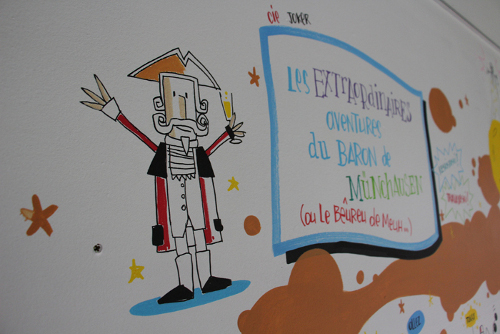 cie JOKER
Les EXTRAORDINAIRES
OVENTURES
du BARON de
MÜNCHAUSEN
(ou Le Bêureu de Meuh...)